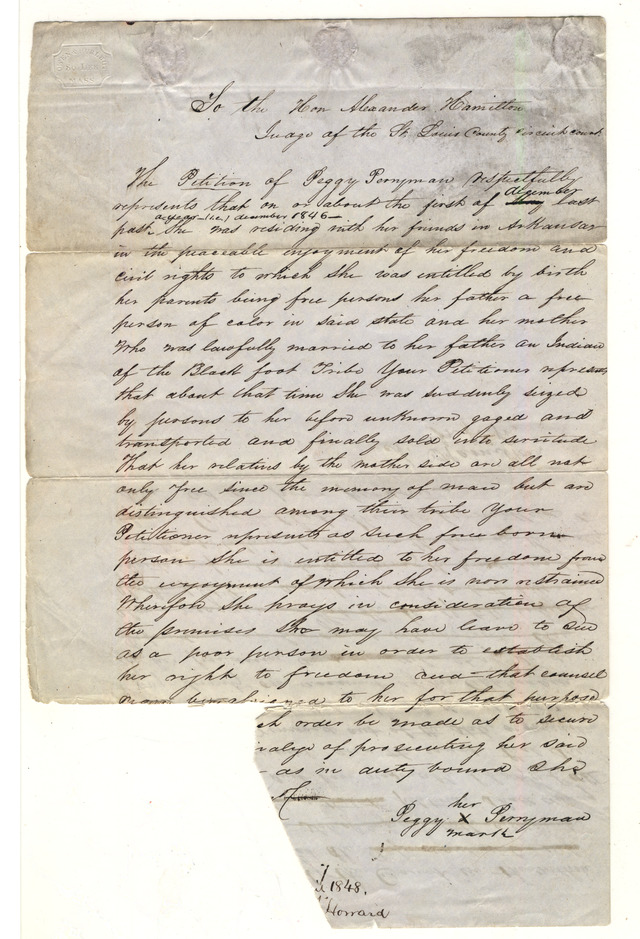 To the Hon Alexander Hamilton
Judge of the St Louis County Circuit court
The Petition of Peggy Perryman respectfully
represents that on or about the first of december last
a year (i.e.) december 1846
past She was residing with her friends in Arkansas
in the peaceable enjoyment of her freedom and
civil rights to which She was entitled by birth
her parents being free persons her father a free
person of color in said state and her mother
Who was lawfully married to her father an Indian
of the Black foot Tribe Your Petitioner represents
that about that time She was suddenly seized
by persons to her before unknown gaged and
transported and finally sold into servitude
That her relatives by the mother side are all not
only free since the memory of man but are
distinguished among their tribe Your
Petitioner represents as such free born
person She is entitled to her freedom from
the enjoyment of which She is now restrained
Wherefore She prays in consideration of
the premises She may have leave to Sue
as a poor person in order to establish
her right to freedom and that counsel
to her for that purpose
ch order be made as to secure
of prosecuting her said
as in duty bound She
her
Peggy X Perryman
mark
1848.
Howard